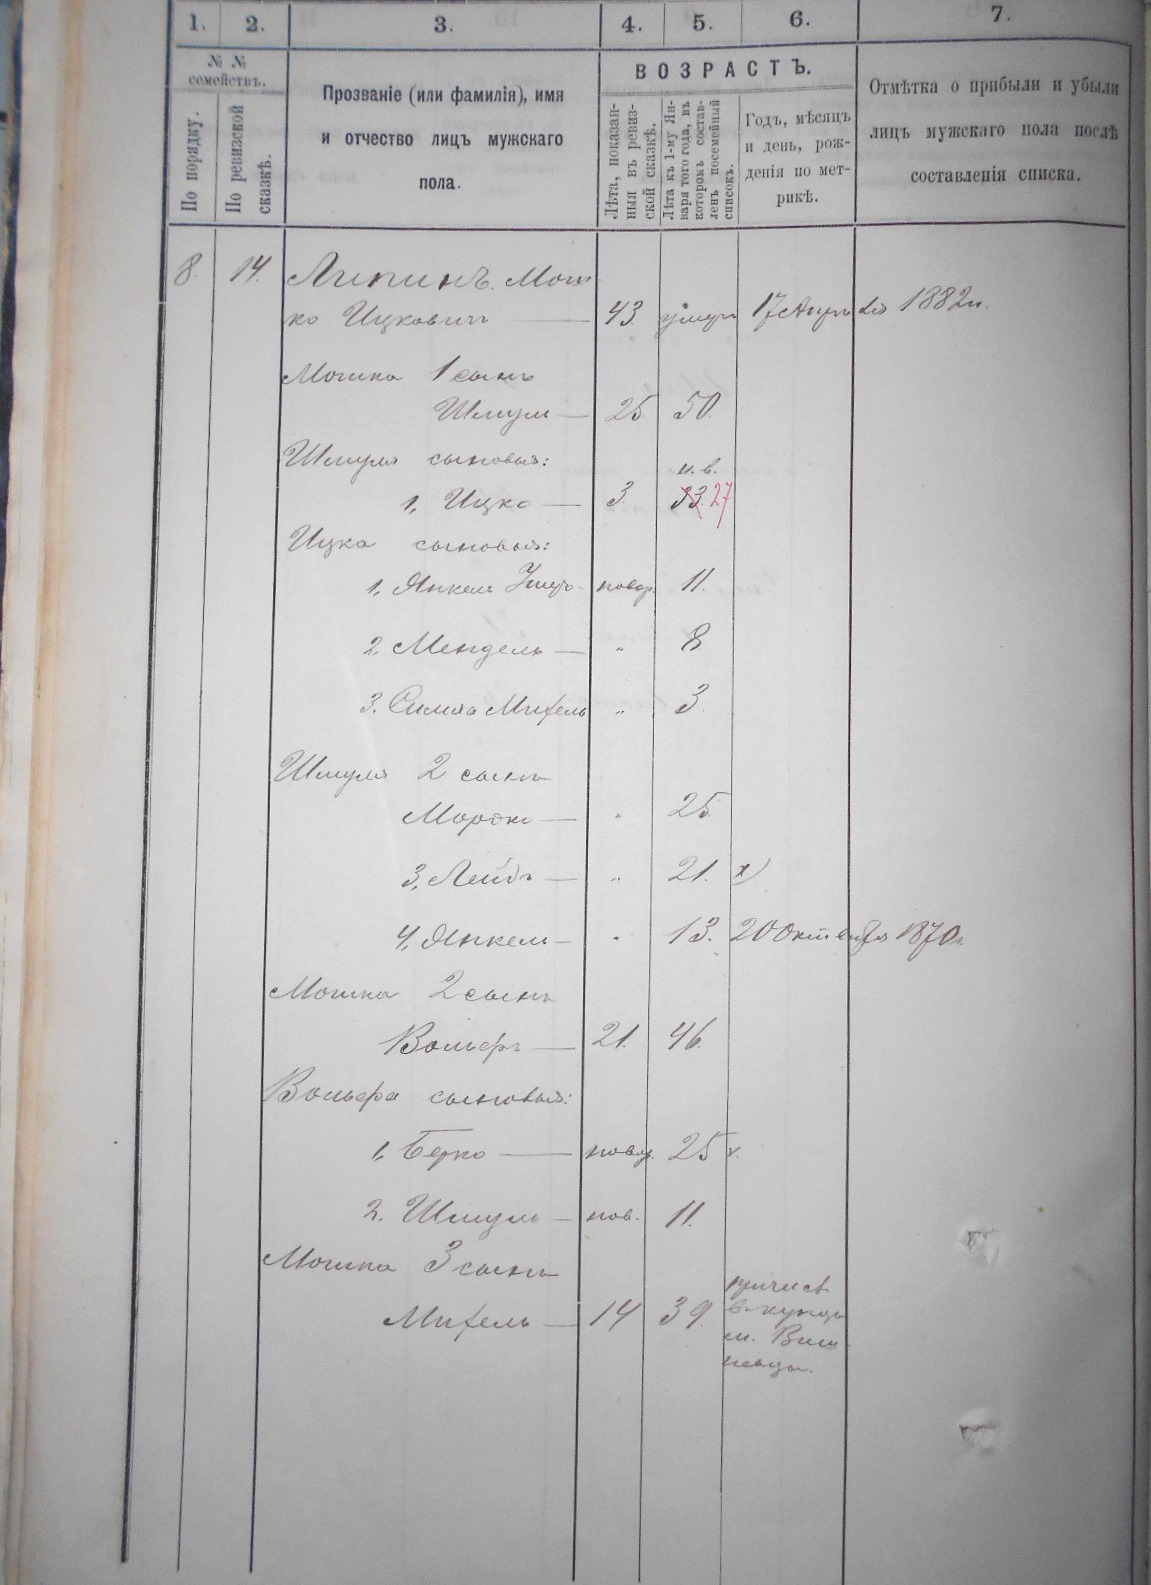 1. 2. 3. 4. 5. 6. 7.
№ №
семействъ.
По порядку.
По ревизской
сказкѣ.
Прозваніе (или фамилія), имя
и отчество лицъ мужскаго
пола.
ВОЗРАСТЪ.
Лѣта, показан-
ныя въ ревиз-
ской сказкѣ.
Лѣта къ 1-му Ян-
варя того года, въ
которомъ состав-
ленъ посемейный
списокъ.
Годъ, мѣсяцъ
и день, рож-
денія по мет-
рикѣ.
Отмѣтка о прибыли и убыли
лицъ мужскаго пола послѣ
составленія списка.
8. 14. Липинъ. Мош
ко Ицковичъ 43. умеръ 17 Апрѣля 1882 г.
Мошка 1 сынъ
Шмуль — 25. 50.
Шмуля сыновья: н. в.
1, Ицко — 3. 33. 27
Ицка сыновья:
1, Янкель 11.
2, Мендель — " 8
3. Симха Михель " 3.
Шмуля 2 сынъ
Мордко — " 25
3, Лейбъ — " 21. х)
4, Янкель — " 13. 20 Октября 1870 г.
Мошка 2 сынъ
Вольфъ — 21. 46.
Вольфа сыновья:
1, Берко — новор. 25 х.
2. Шмуль — нов. 11.
Мошка 3 сынъ
Михель — 14 39. причисл
в купцы
м. Виш
невца.